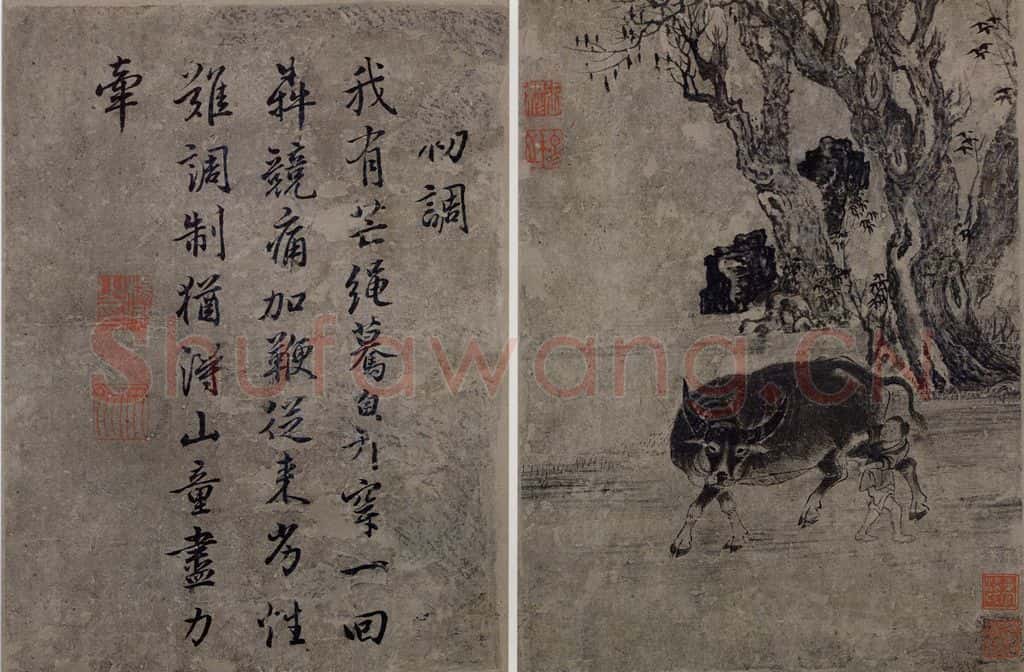 初調
我有芒繩驀鼻穿一回
奔競痛加鞭從來劣性
難調制猶得山童盡力
牽
Shufawang.CN